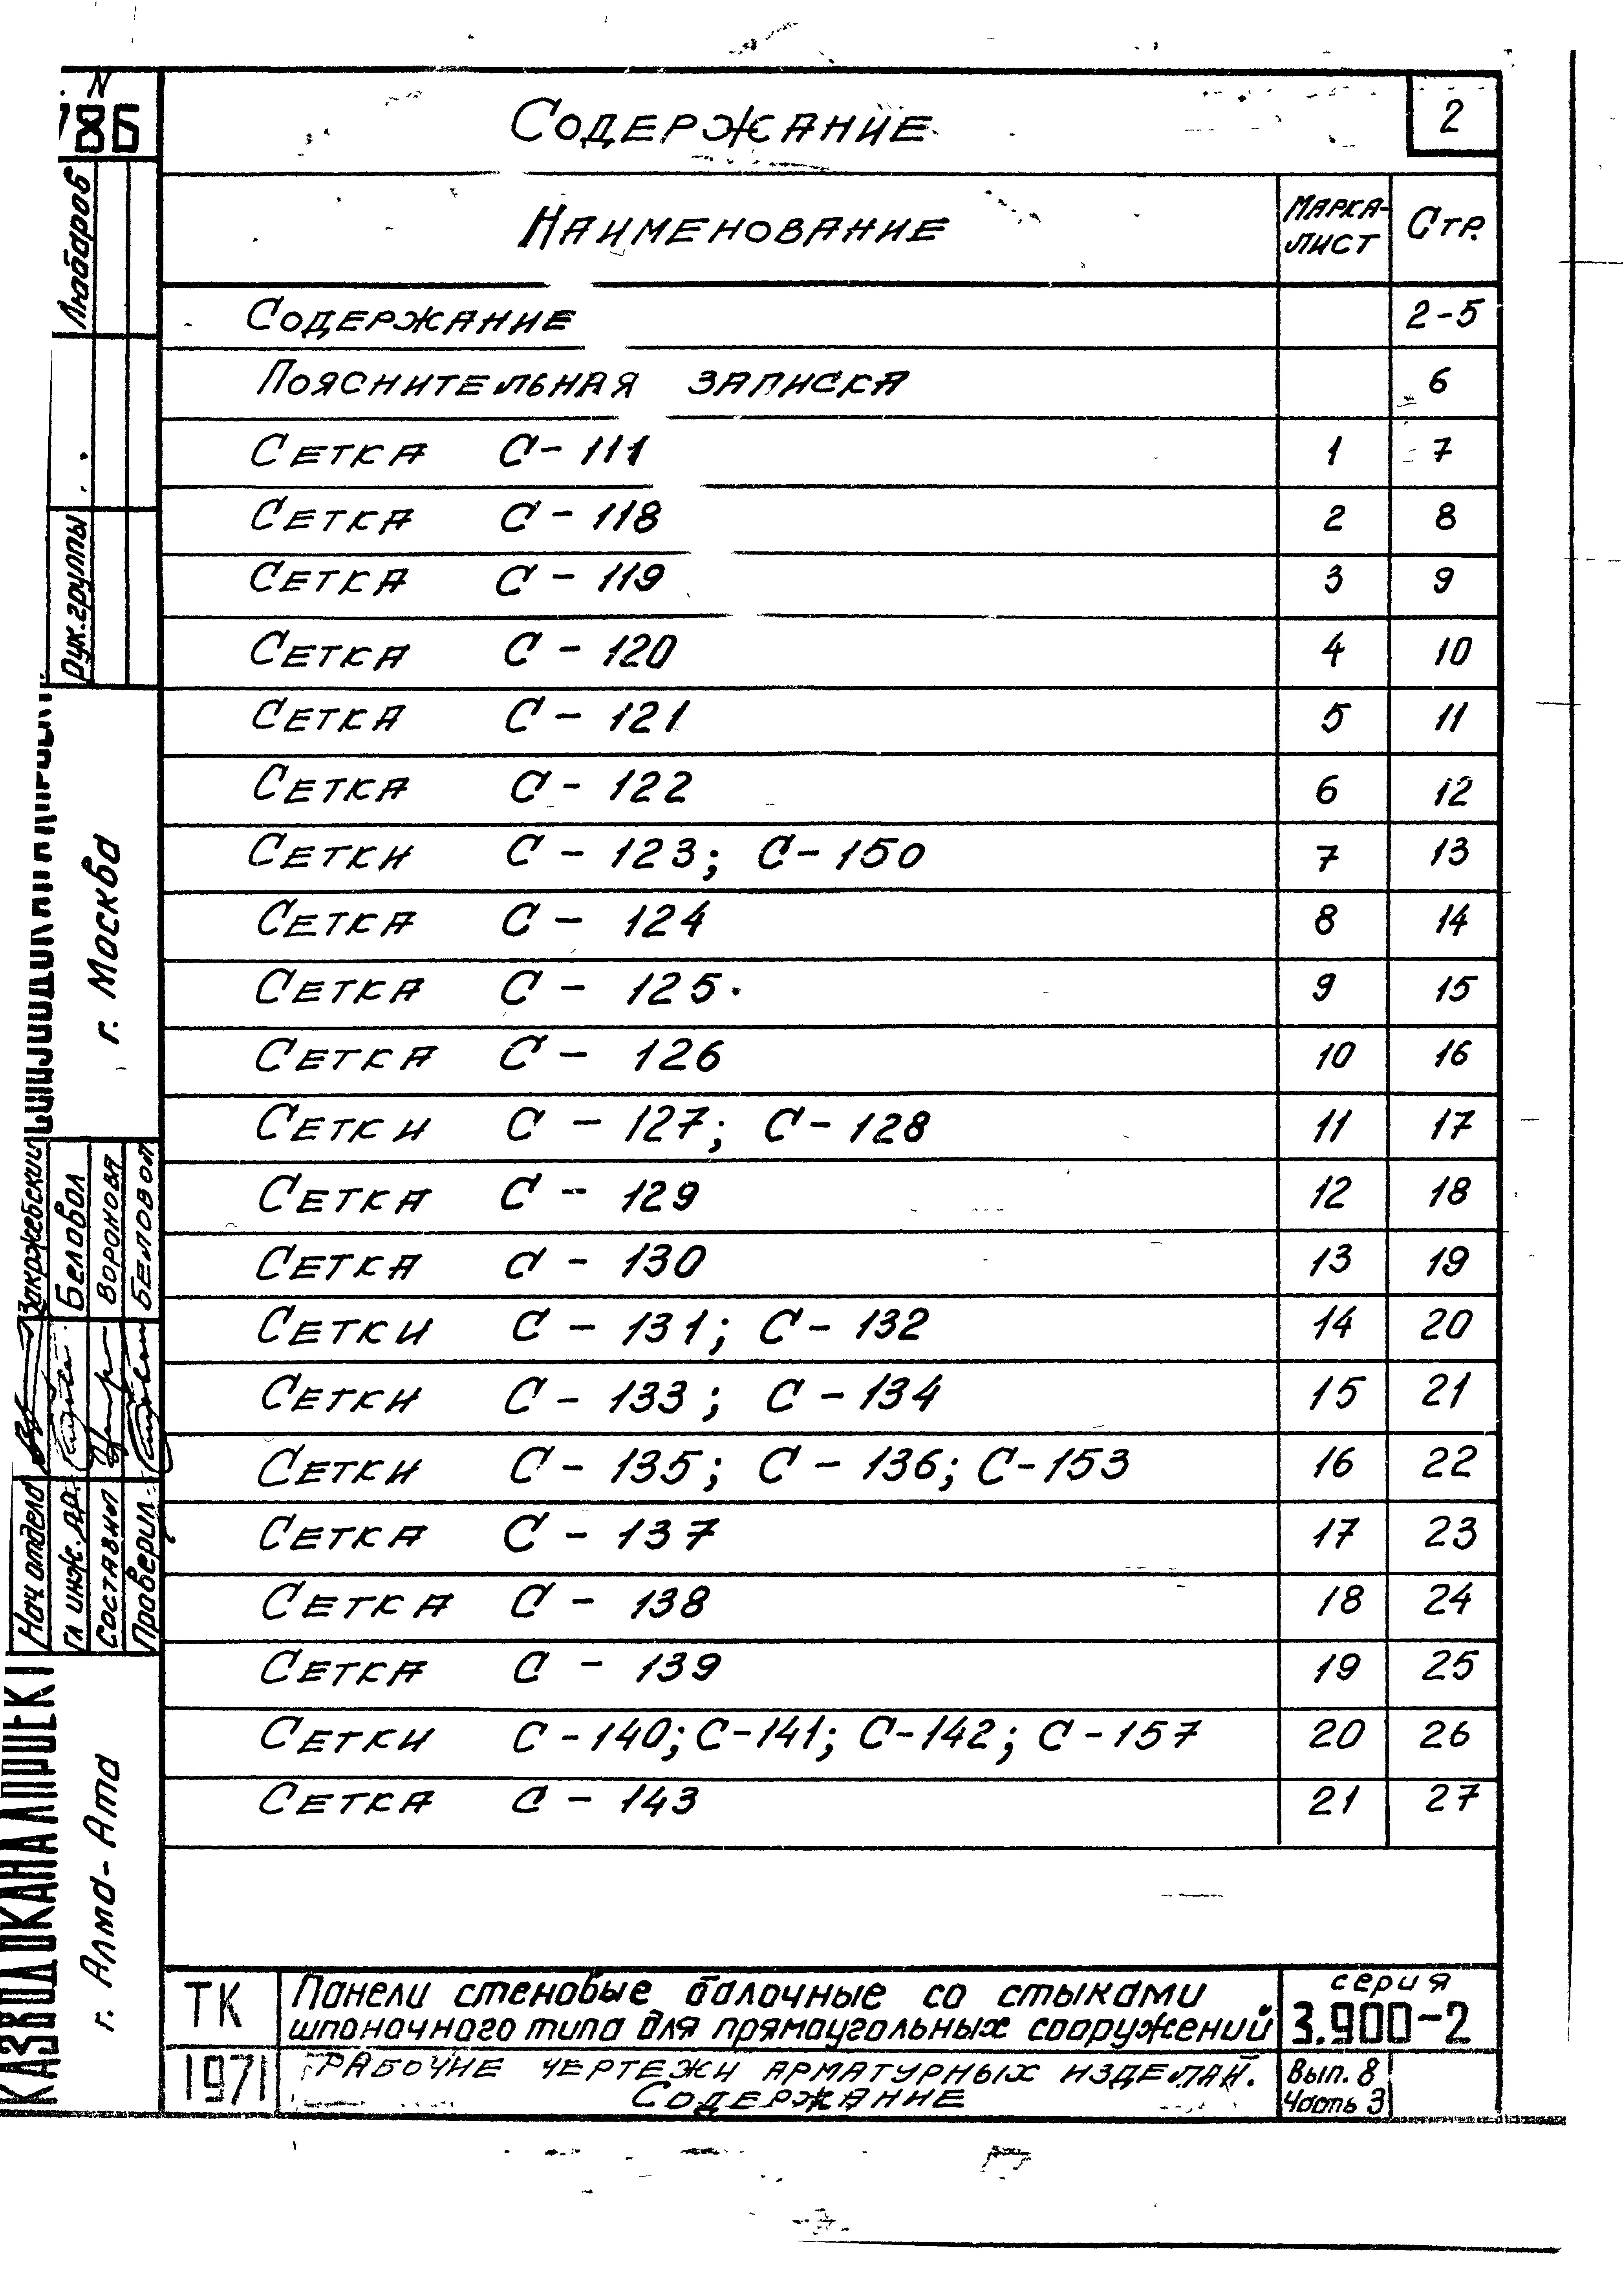 N
786
Содержание
2
Наименование
Марка-лист
Стр.
Содержание 2-5
Пояснительная записка 6
Сетка С-111 1 7
Сетка С-118 2 8
Сетка С-119 3 9
Сетка С-120 4 10
Сетка С-121 5 11
Сетка С-122 6 12
Сетки С-123; С-150 7 13
Сетка С-124 8 14
Сетка С-125. 9 15
Сетка С-126 10 16
Сетки С-127; С-128 11 17
Сетка С-129 12 18
Сетка С-130 13 19
Сетки С-131; С-132 14 20
Сетки С-133; С-134 15 21
Сетки С-135; С-136; С-153 16 22
Сетка С-137 17 23
Сетка С-138 18 24
Сетка С-139 19 25
Сетки С-140; С-141; С-142; С-157 20 26
Сетка С-143 21 27
ТК
1971
Панели стеновые балочные со стыками
шпоночного типа для прямоугольных сооружений
Рабочие чертежи арматурных изделий.
Содержание
серия
3.900-2
Вып. 8
Часть 3
Рук. группы
г. Москва
Нач отдела Закржевский
Гл инж. пр. Беловол
Составил Воронова
Проверил Беловол
КАЗВОДОКАНАЛПРОЕКТ
г. Алма-Ата